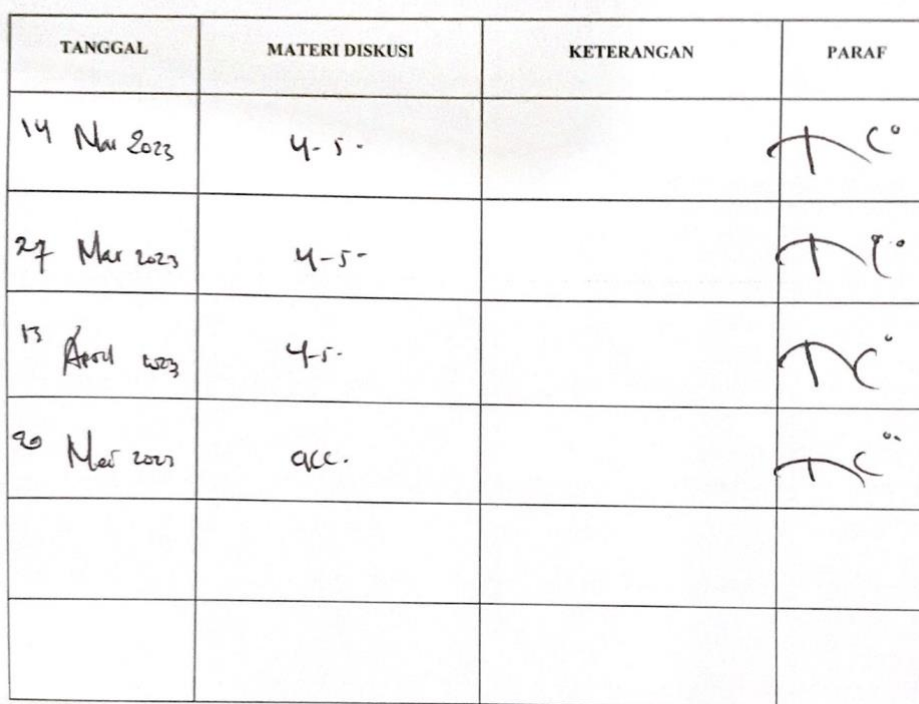 TANGGAL MATERI DISKUSI KETERANGAN PARAF
14 Mar 2023 4-5-
27 Mar 2023 4-5-
13 April 2023 4-5-
20 Mei 2023 acc.